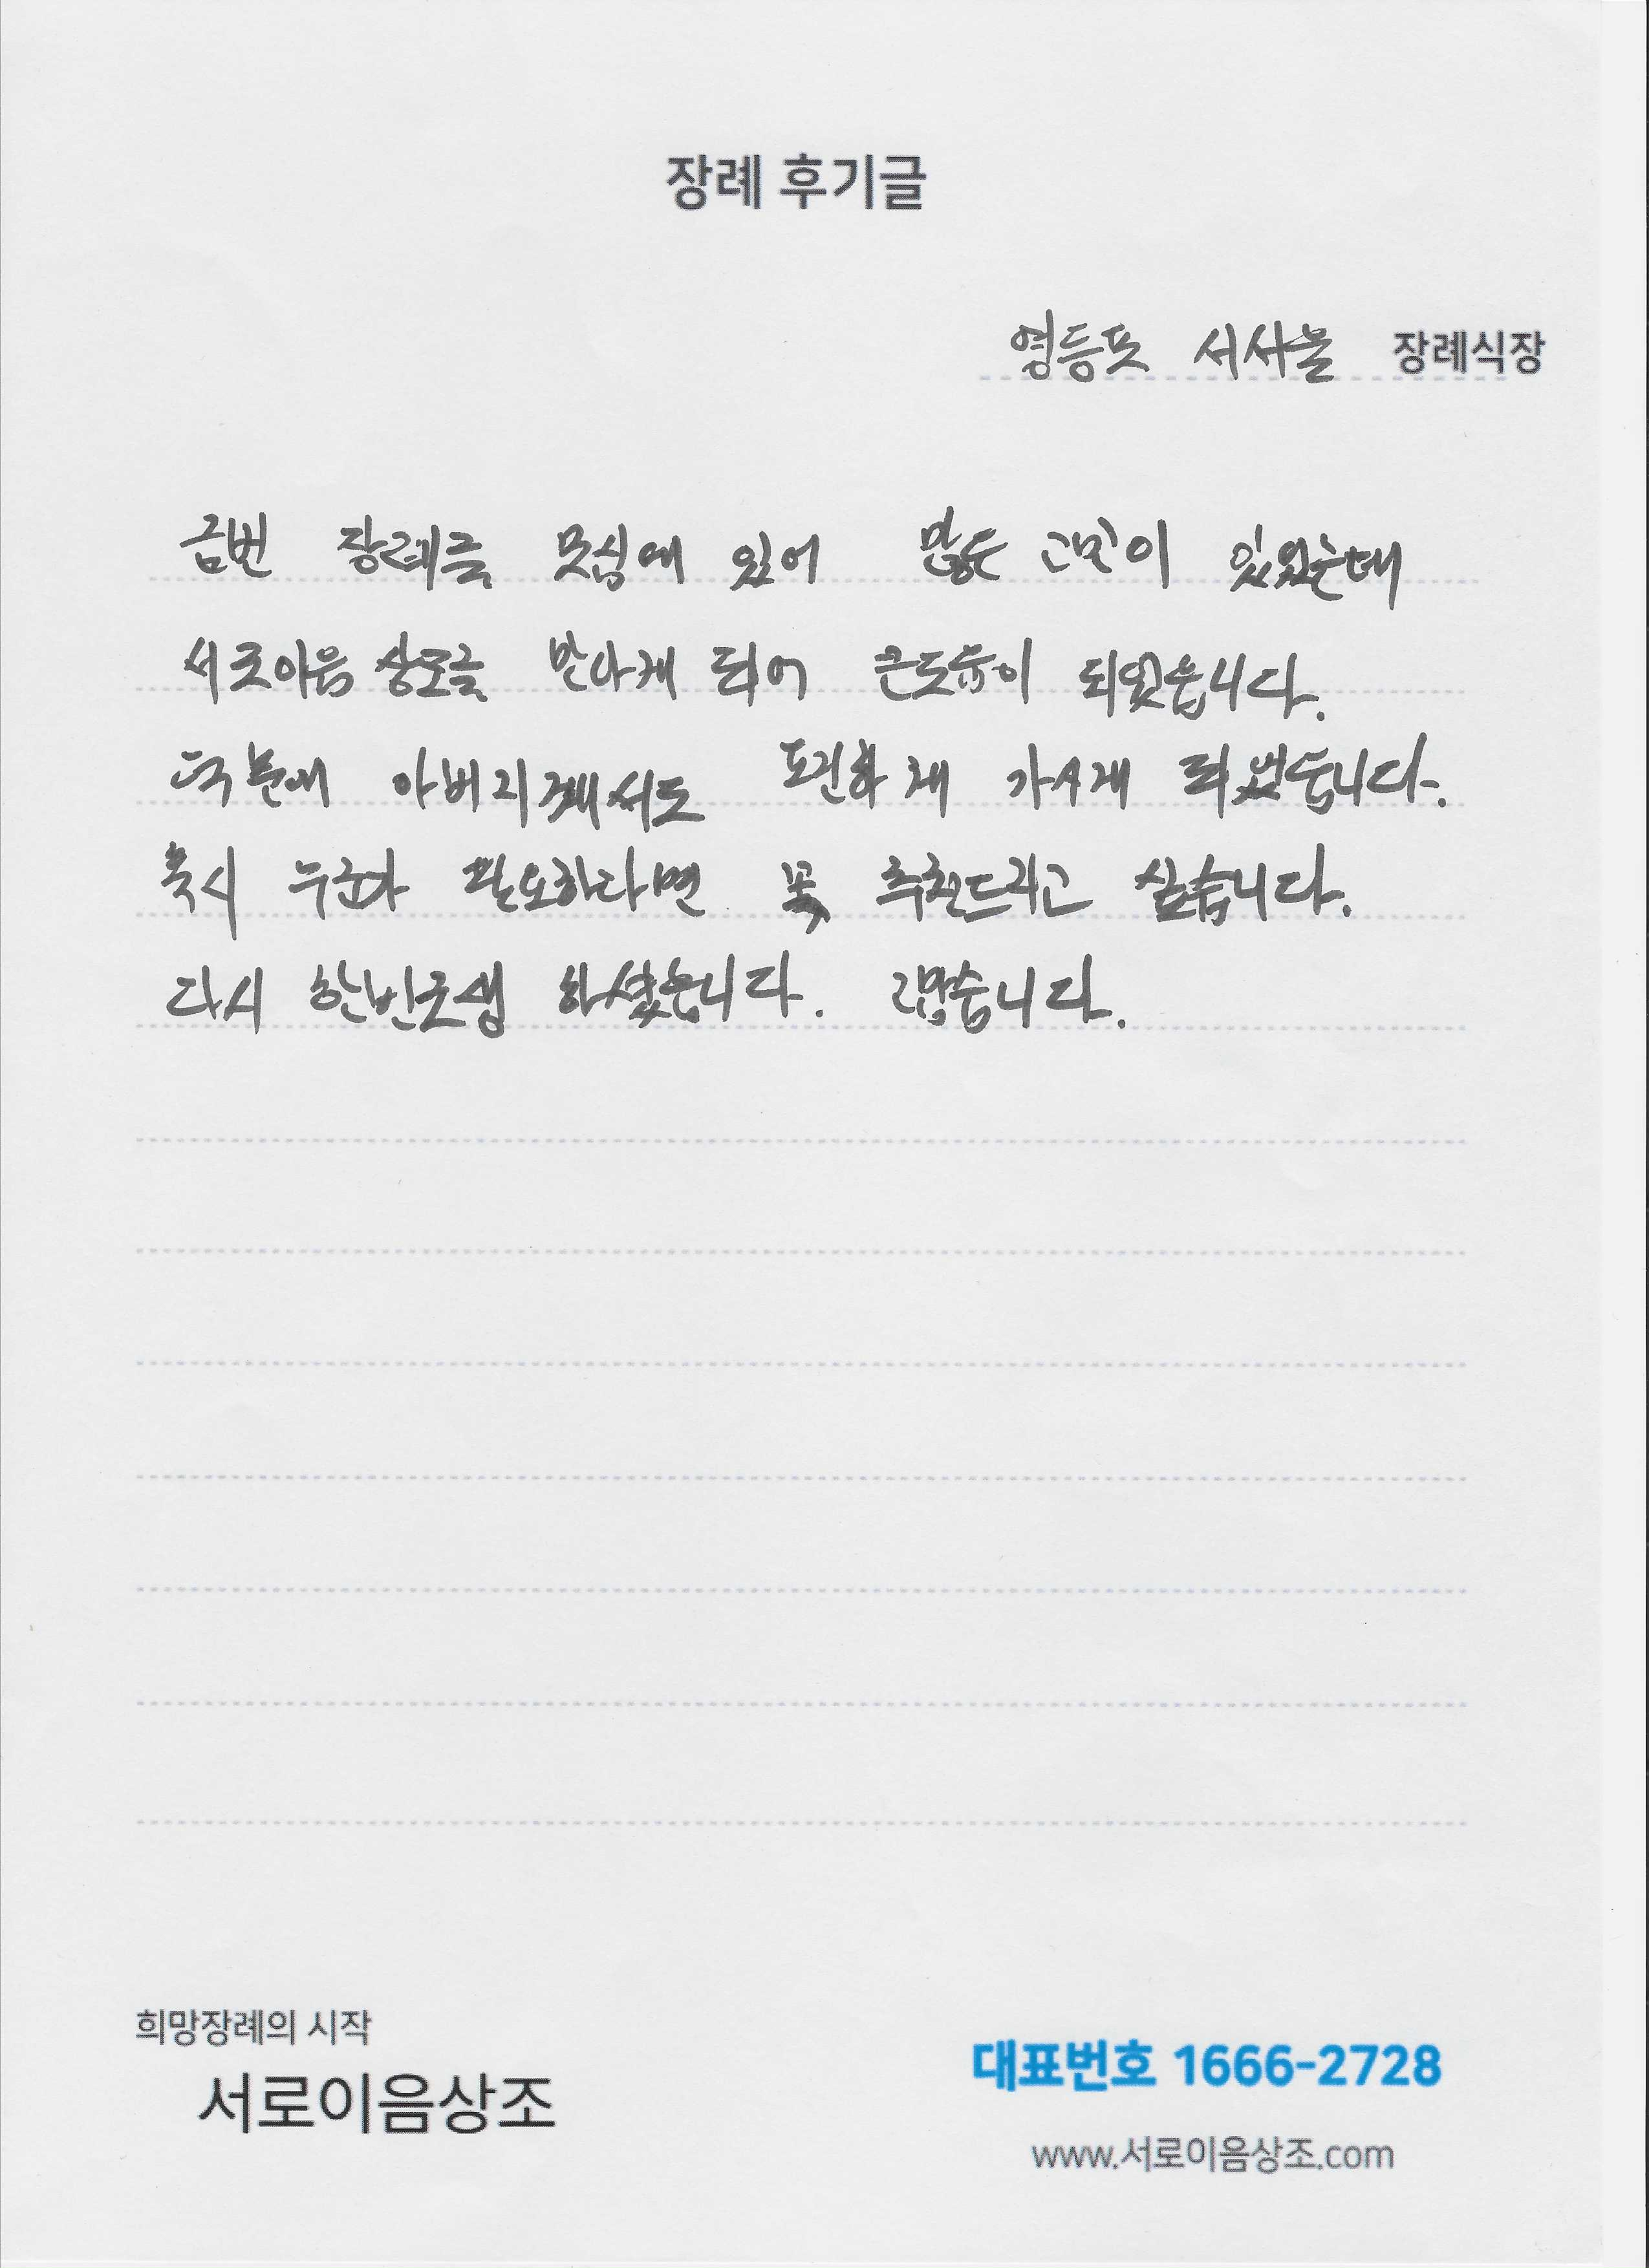 장례 후기글
영등포 서서울 장례식장
금번 장례를 모심에 있어 많은 고민이 있었는데
서로이음 상조를 만나게 되어 큰도움이 되었읍니다.
덕분에 아버지께서도 편하게 가시게 되었습니다.
혹시 누군가 필요하다면 꼭 추천드리고 싶습니다.
다시 한번 고생 하셨습니다. 고맙습니다.
희망장례의 시작
서로이음상조
대표번호 1666-2728
www.서로이음상조.com